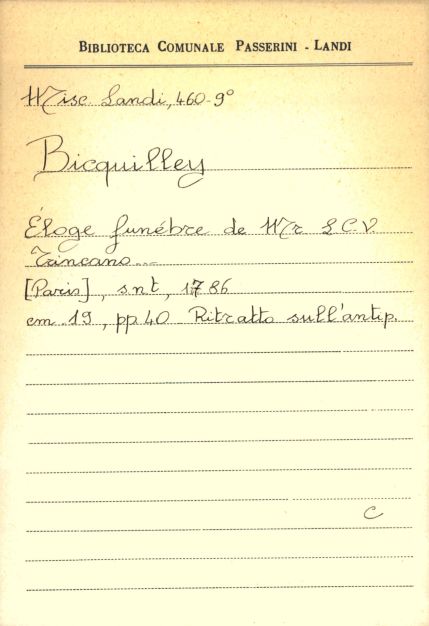 BIBLIOTECA COMUNALE PASSERINI - LANDI
Misc Landi, 460-9°
Bicquilley
Éloge funébre de Mr L C V
Trincano...
[Paris], s.n.t, 1786
cm 19, pp 40 Ritratto sull'antip.
C